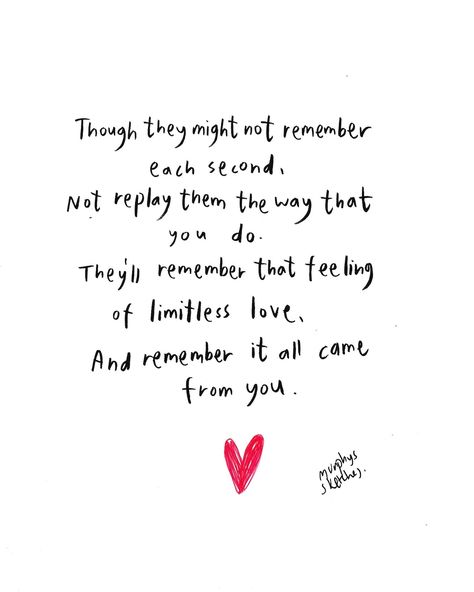 Though they might not remember
each second,
Not replay them the way that
you do.
They'll remember that feeling
of limitless love,
And remember it all came
from you.
Murphys
sketches.